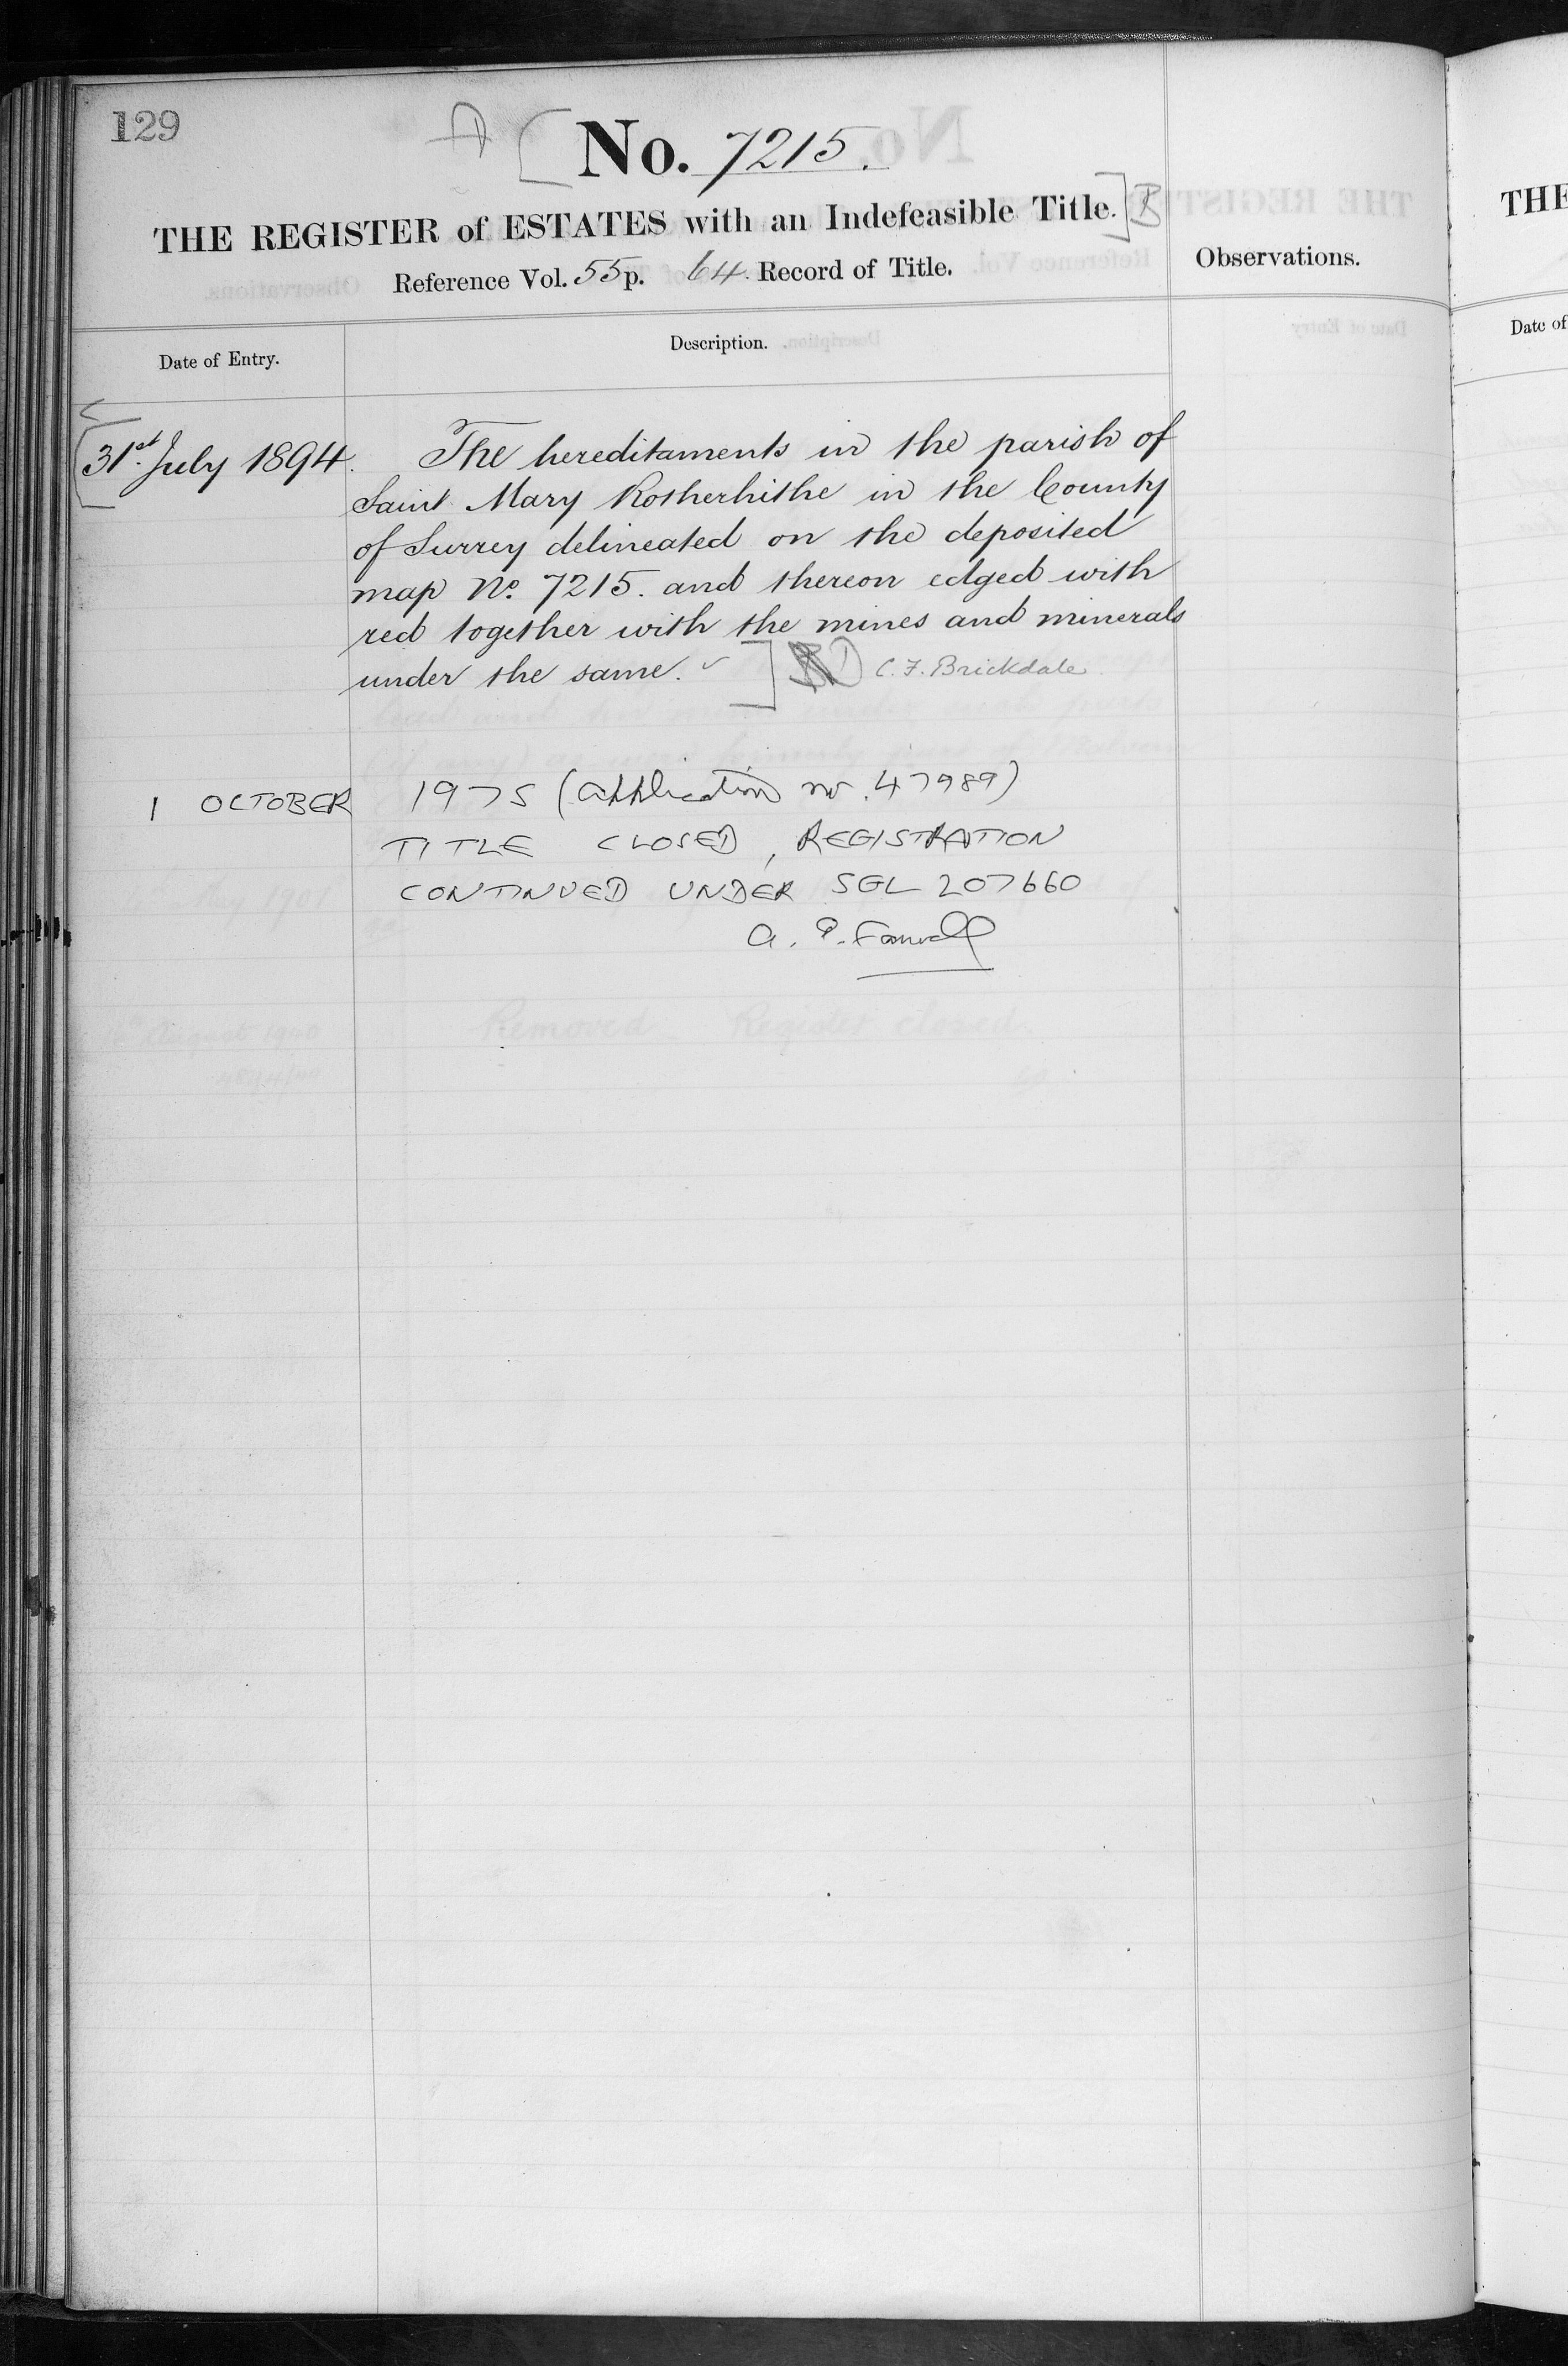 129
A [ No. 7215.
THE REGISTER of ESTATES with an Indefeasible Title. ] B
Reference Vol. 55 p. 64. Record of Title.
Observations.
Date of Entry.
Description.
31st July 1894.
The hereditaments in the parish of
Saint Mary Rotherhithe in the County
of Surrey delineated on the deposited
map No. 7215. and thereon edged with
red together with the mines and minerals
under the same. ] D C. F. Brickdale
1 OCTOBER 1975 (Application no. 47989)
TITLE CLOSED, REGISTRATION
CONTINUED UNDER SGL 207660
A. P.
Removed Register closed
THE
Date of